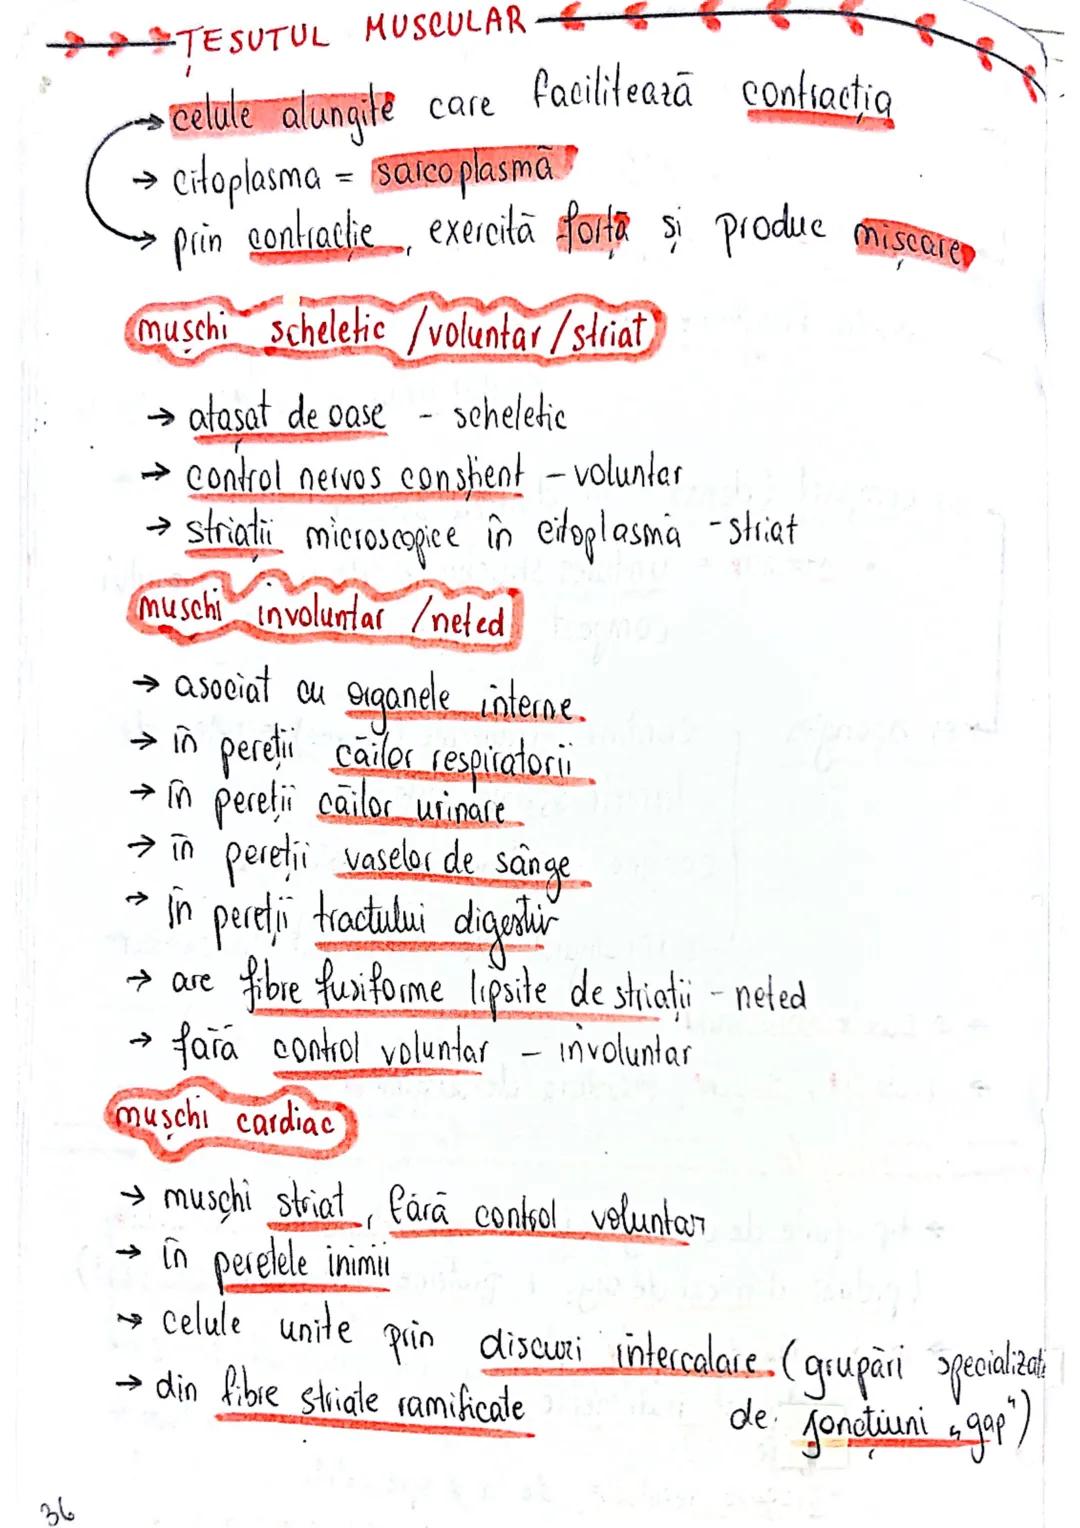 ȚESUTUL MUSCULAR
→ celule alungite care facilitează contracția
→ citoplasma = sarcoplasmă
→ prin contracție, exercită forță și produc mișcare
mușchi scheletic / voluntar / striat
→ atașat de oase - scheletic
→ control nervos conștient - voluntar
→ striații microscopice în citoplasmă - striat
mușchi involuntar / neted
→ asociat cu organele interne
→ în pereții căilor respiratorii
→ în pereții căilor urinare
→ în pereții vaselor de sânge
→ în pereții tractului digestiv
→ are fibre fusiforme lipsite de striații - neted
→ fără control voluntar - involuntar
mușchi cardiac
→ mușchi striat, fără control voluntar
→ în peretele inimii
→ celule unite prin discuri intercalare (grupări specializate
de joncțiuni „gap")
→ din fibre striate ramificate
36